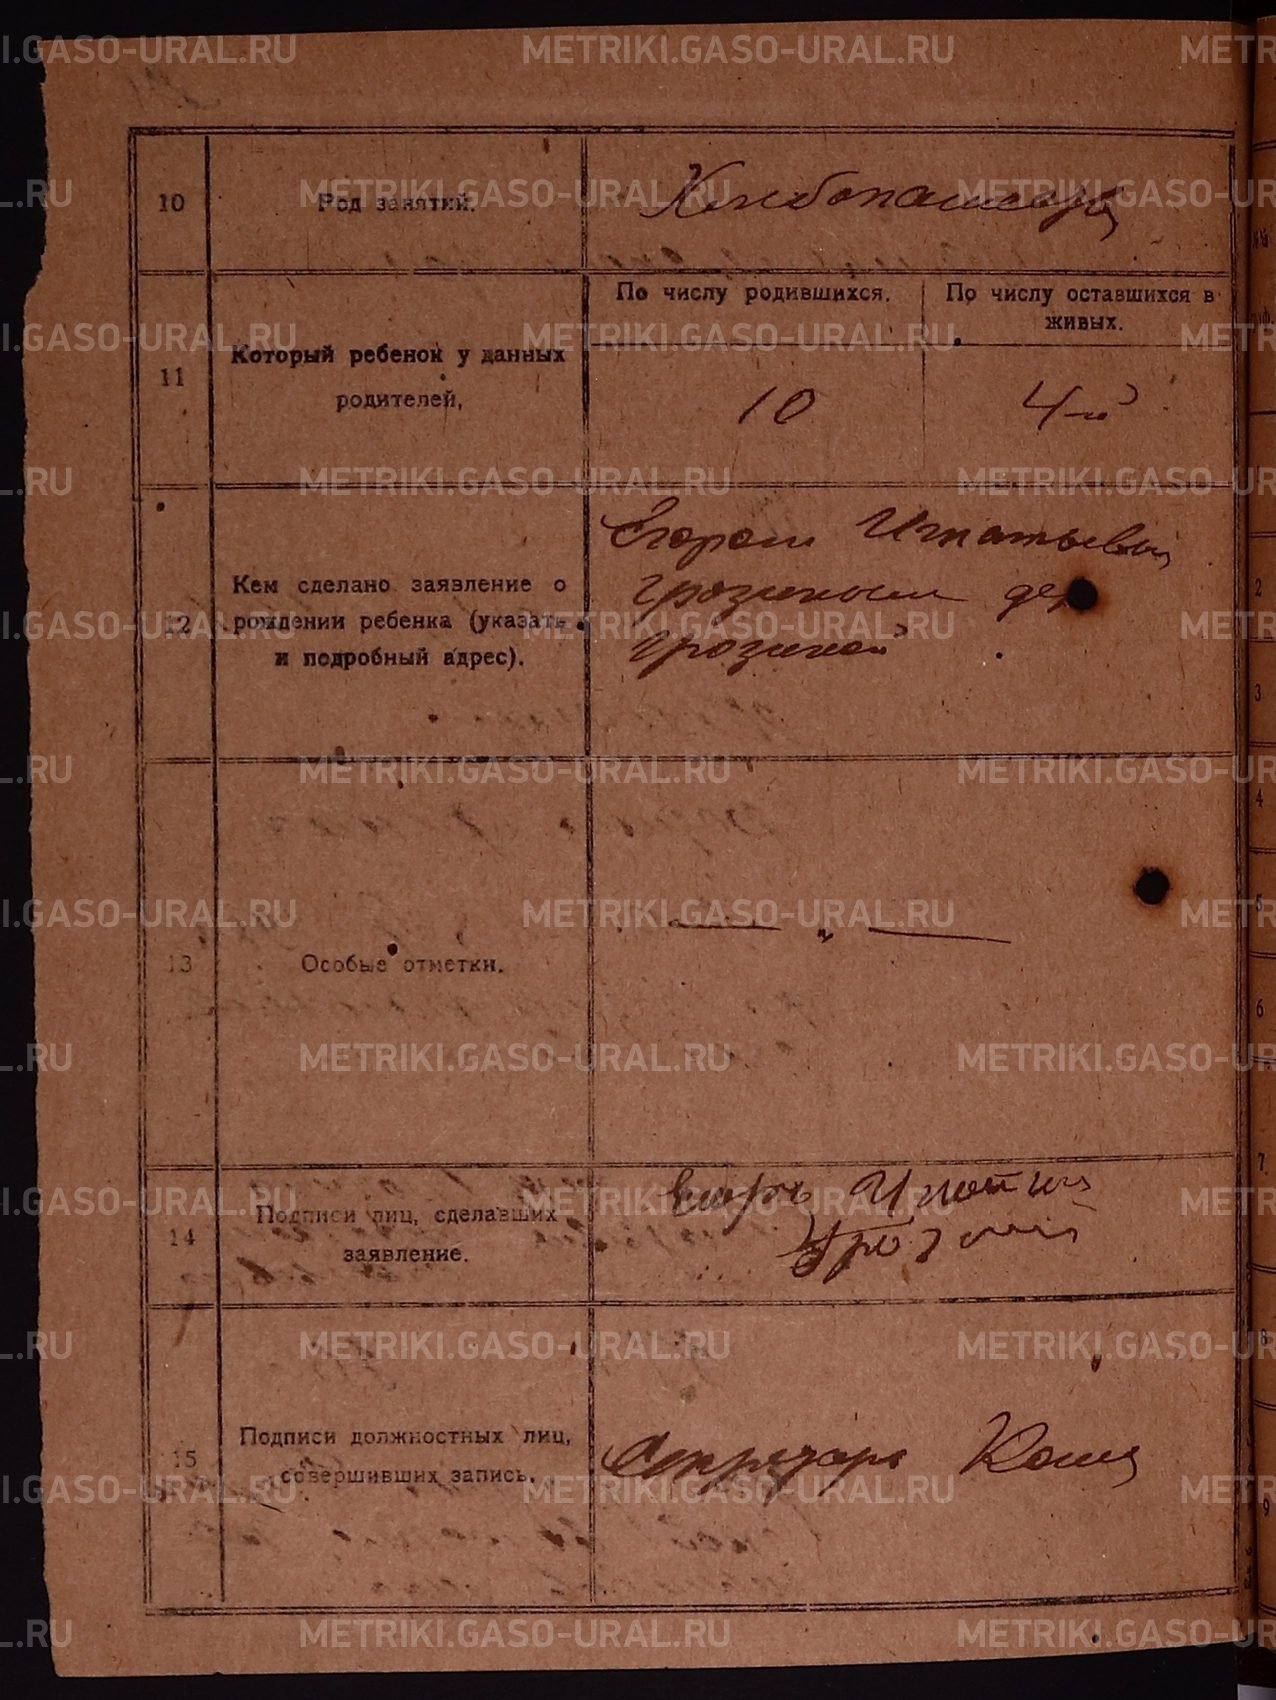 METRIKI.GASO-URAL.RU
10
Род занятий.
Хлебопашество
11
Который ребенок у данных
родителей,
По числу родившихся.
По числу оставшихся в
живых.
10
4-й
12
Кем сделано заявление о
рождении ребенка (указать
и подробный адрес).
Егором Игнатьевым
Грозиным дер
Грозиной
13
Особые отметки.
— „ —
14
Подписи лиц, сделавших
заявление.
Егоръ
15
Подписи должностных лиц,
совершивших запись.
Секретарь
2
3
4
5
6
7
8
9